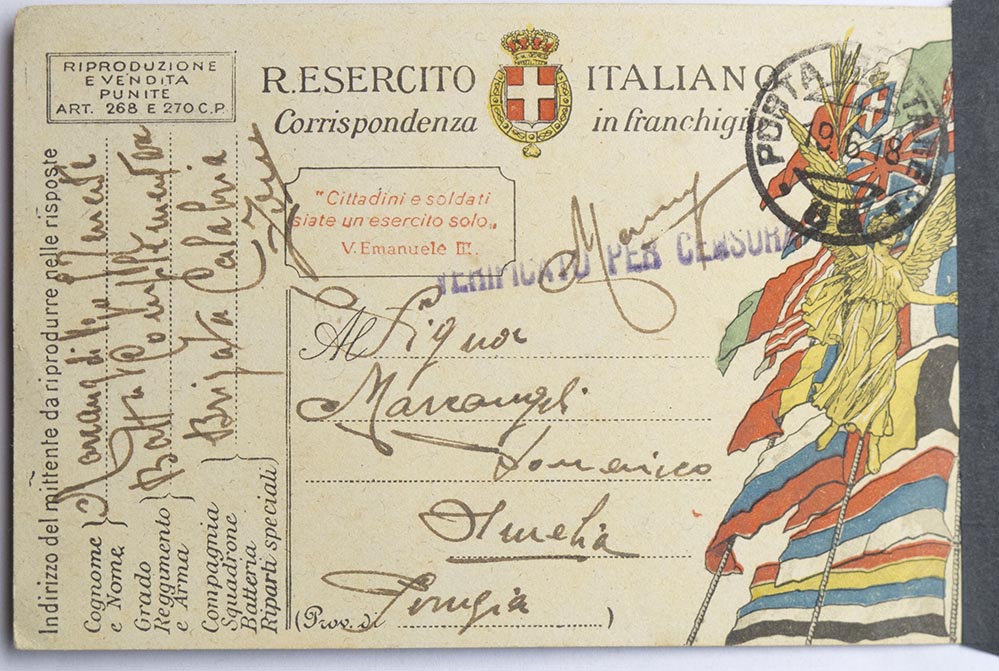 RIPRODUZIONE
E VENDITA
PUNITE
ART. 268 E 270 C.P.
R. ESERCITO ITALIANO
Corrispondenza in franchigi
"Cittadini e soldati
siate un esercito solo„
V. Emanuele III.
VERIFICATO PER CENSURA
POSTA
19 6 18
Al Signor
Marcangeli
Domenico
Amelia
(Prov. di Perugia)
Indirizzo del mittente da riprodurre nelle risposte
Cognome e Nome
Grado Reggimento e Arma
Compagnia Squadrone Batteria Riparti speciali
Brigata Calabria